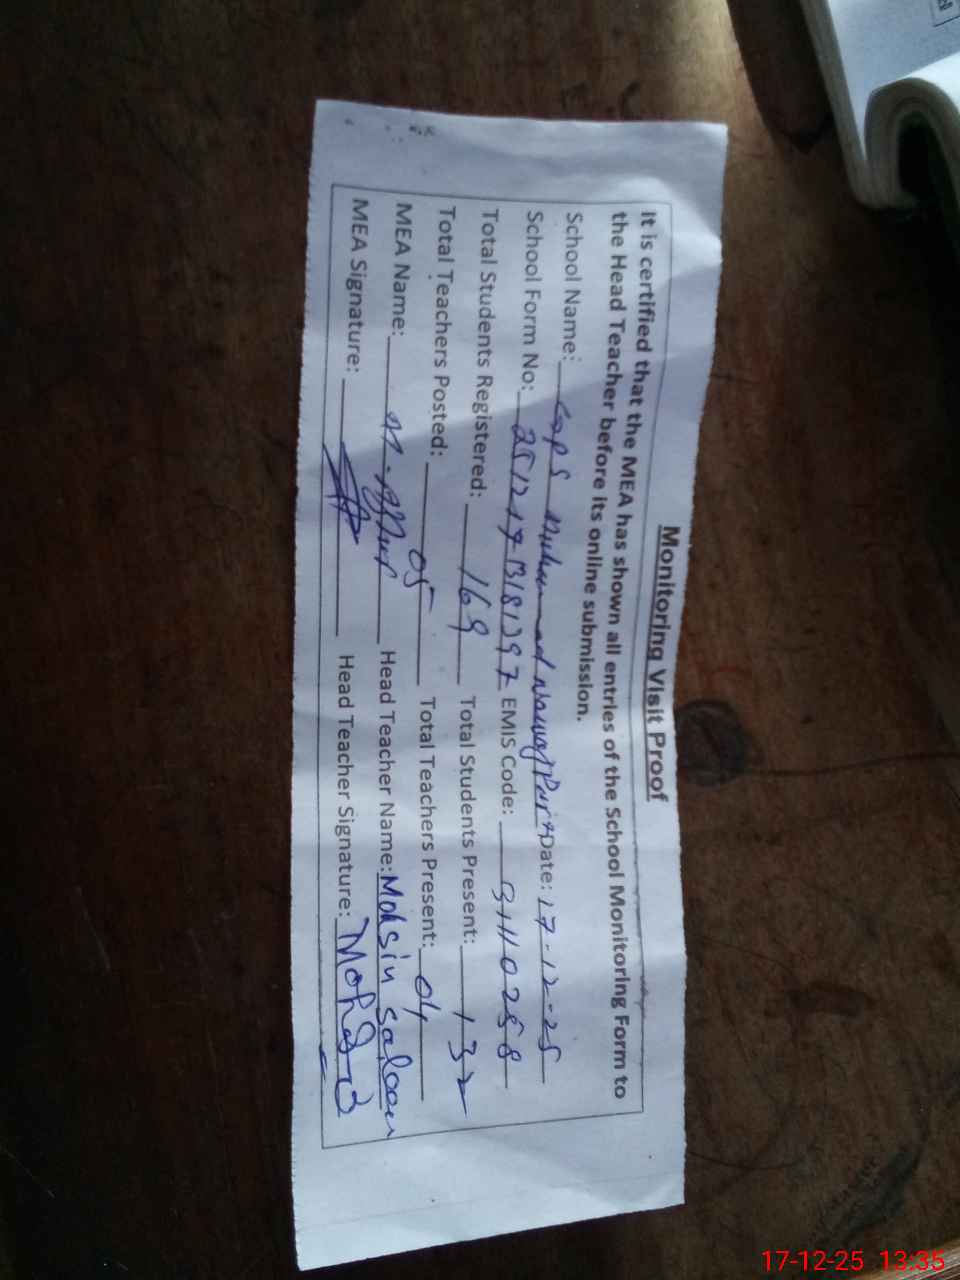 Monitoring Visit Proof
It is certified that the MEA has shown all entries of the School Monitoring Form to
the Head Teacher before its online submission.
School Name: GGPS Muhammad Date: 17-12-25
School Form No: EMIS Code: 31110258
Total Students Registered: 169 Total Students Present: 132
Total Teachers Posted: 05 Total Teachers Present: 04
MEA Name: Head Teacher Name: Mohsin Saleem
MEA Signature: Head Teacher Signature:
17-12-25 13:35